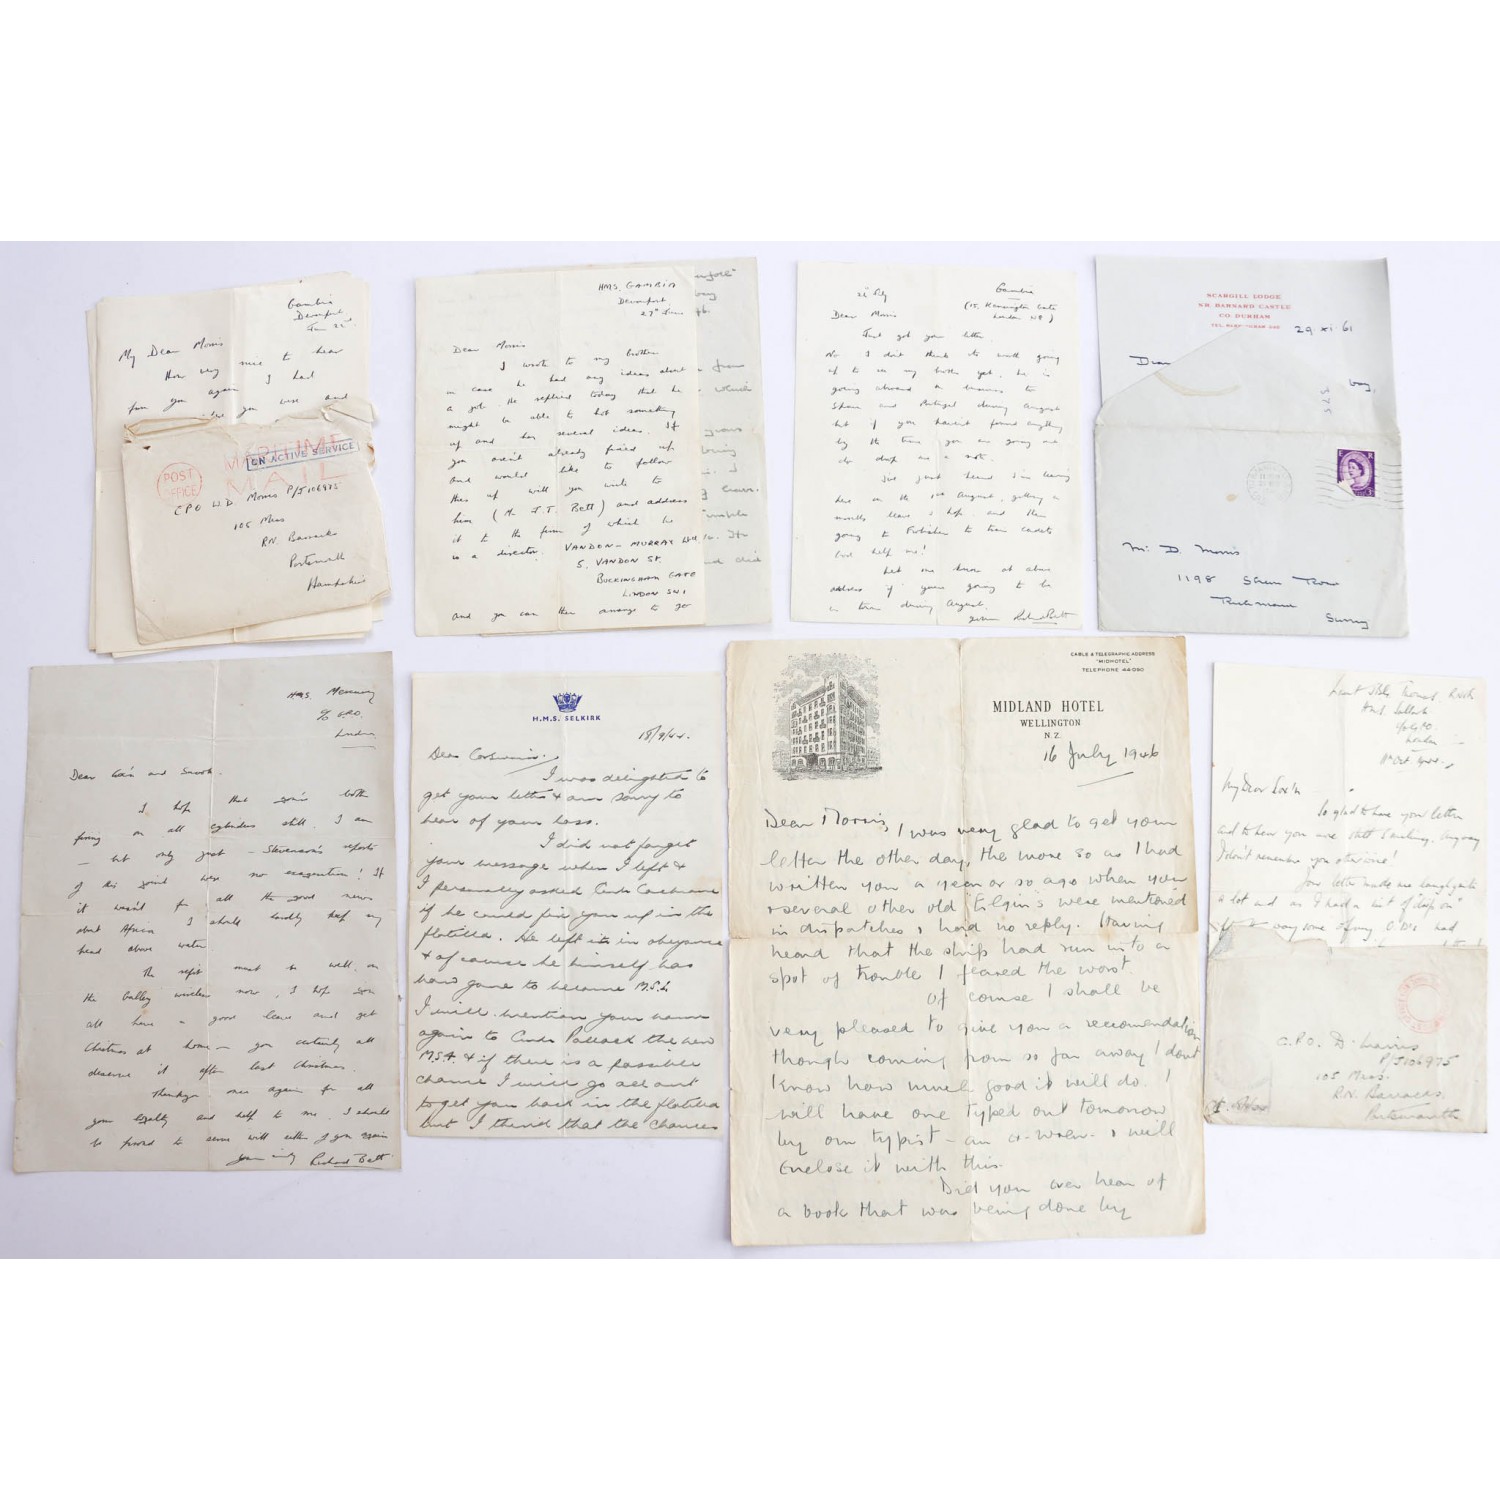 Gambia
Devonport
June 22nd
My Dear Morris
How very nice to hear
from you again. I had
you were and
POST
OFFICE
MARITIME
MAIL
ON ACTIVE SERVICE
CPO W D Morris P/J106975
105 Mess
RN. Barracks
Portsmouth
Hampshire
HMS. GAMBIA
Devonport
27th June
Dear Morris
I wrote to my brother
in case he had any ideas about
a job. He replied today that he
might be able to hot something
up and has several ideas. If
you aren't already fixed up
and would like to follow
this up will you write to
him (Mr J.T. Bett) and address
it to the firm of which he
is a director. VANDON-MURRAY Ltd
5, VANDON ST.
BUCKINGHAM GATE
LONDON SW1
and you can then arrange to go
Gambia
(15, Kensington Gate
London W8)
Dear Morris
Just got your letter.
No I don't think its worth going
up to see my brother yet, he is
going abroad on business to
Spain and Portugal during August
but if you haven't found anything
by the time you are going one
do drop me a note.
Just heard I'm leaving
here on the 1st August, getting a
months leave I hope and then
going to Frobisher to train cadets
God help me!
Let me know at above
address if you're going to be
in town during August.
Yours Richard Bett
SCARGILL LODGE
NR. BARNARD CASTLE
CO. DURHAM
29 XI 61
Dear
Mr D. Morris
1198
Richmond
Surrey
HMS. Mercury
c/o G.P.O.
London
Dear and
I hope that you're both
firing on all cylinders still. I am
— but only just — Stevenson's reports
of this joint were no exaggeration! If
it wasn't for all the good news
about Africa I should hardly keep my
head above water.
The refit must be well on
the galley wireless now. I hope you
all have a good leave and get
Christmas at home — you certainly all
deserve it after last Christmas.
Thankyou once again for all
your loyalty and help to me. I should
be proud to serve with either of you again
Yours Richard Bett
H.M.S. SELKIRK
18/9/44.
Dear
I was delighted to
get your letter & am sorry to
hear of your loss.
I did not forget
your message when I left &
I personally asked Cmdr Cochrane
if he could fix you up in the
flotilla. He left it in abeyance
& of course he himself has
now gone to become M.S.L
I will mention your name
again to Cmdr Pollock the new
M.S.A. & if there is a possible
chance I will go all out
to get you back in the flotilla
but I think that the chances
CABLE & TELEGRAPHIC ADDRESS
"MIDHOTEL"
TELEPHONE 44-090
MIDLAND HOTEL
WELLINGTON
N.Z.
16 July 1946
Dear Morris,
I was very glad to get your
letter the other day, the more so as I had
written you a year or so ago when you
& several other old Kilgin's were mentioned
in dispatches & had no reply. Having
heard that the ship had run into a
spot of trouble I feared the worst.
Of course I shall be
very pleased to give you a recomendation
though coming from so far away I dont
know how much good it will do. I
will have one typed out tomorrow
by our typist - an ex-wren - & will
enclose it with this.
Did you ever hear of
a book that was being done by
HMS Selkirk
c/o G.P.O
London
My Dear
So glad to have your letter
and to hear you are still smiling, anyway
I don't remember you otherwise!
Your letter made me laugh quite
a lot and as I had a bit of "drip on"
way some of my O.D's had
C.P.O. D. Morris
P/J106975
105 Mess.
R.N. Barracks.
Portsmouth